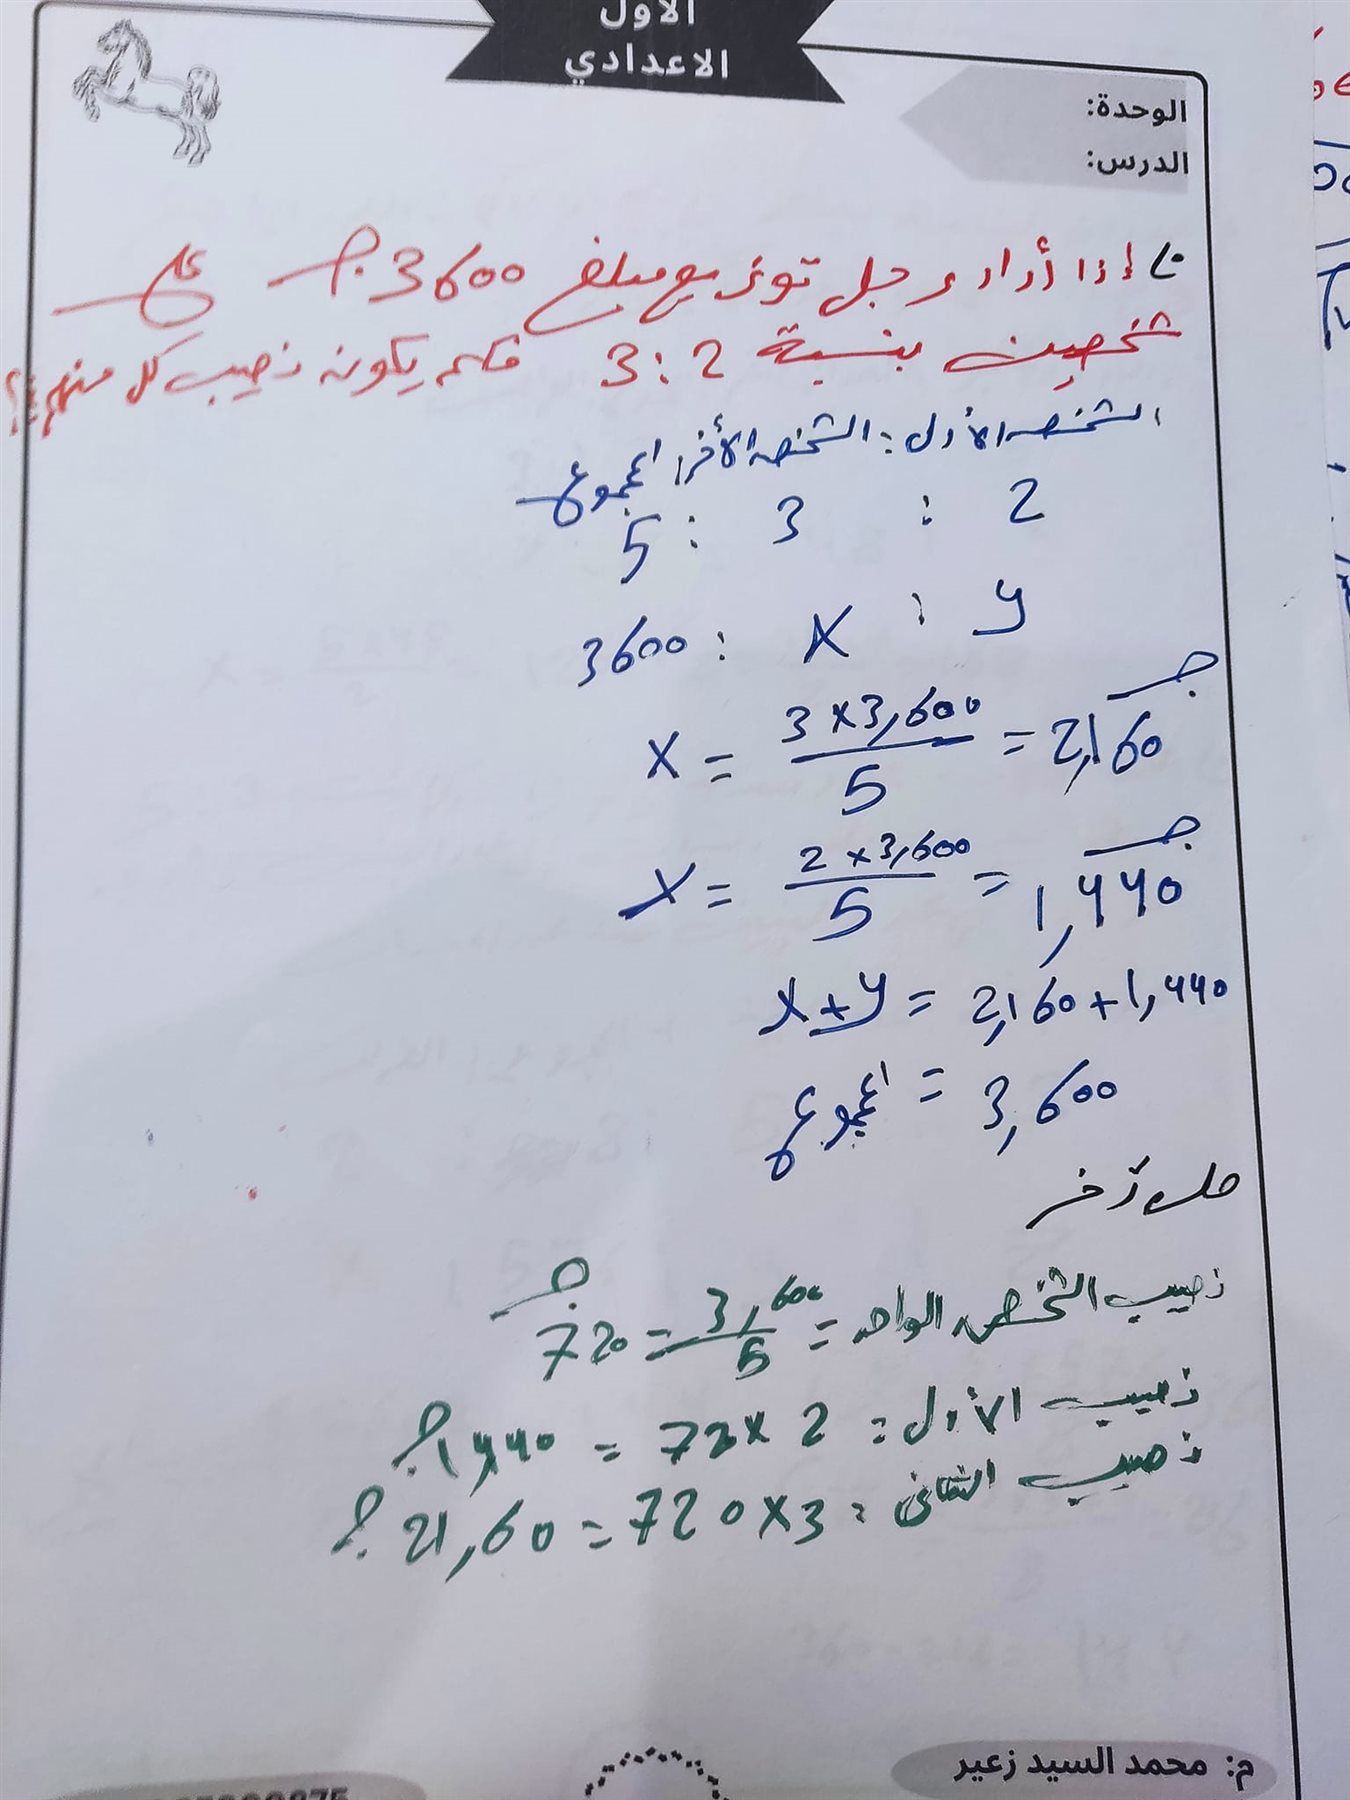 الأول
الاعدادي
الوحدة:
الدرس:
إذا أراد رجل توزيع مبلغ 3600 جـ على
شخصين بنسبة 2 : 3 فكم يكون نصيب كل منهم؟
الشخص الأول : الشخص الآخر : المجموع
2 : 3 : 5
y : x : 3600
x = 3 × 3,600 / 5 = 2,160 جـ
x = 2 × 3,600 / 5 = 1,440 جـ
x + y = 2,160 + 1,440
المجموع = 3,600
حل آخر
نصيب الشخص الواحد = 3,600 / 5 = 720 جـ
نصيب الأول = 2 × 720 = 1,440 جـ
نصيب الثاني = 3 × 720 = 21,60 جـ
م: محمد السيد زعير